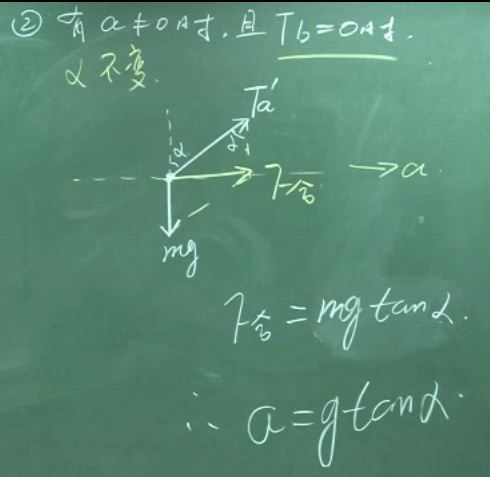 ② 有 a≠0时，且 Tb=0时.
α 不变.
Ta'
α
α
F合
→a
mg
F合=mg tanα.
∴ a=gtanα.